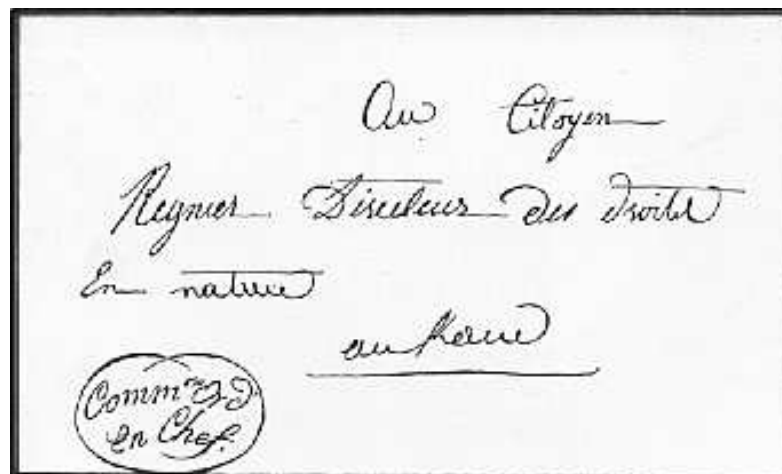 Au Citoyen
Regnier Directeur des droits
En nature
au Kaire
Comm.re Ord.r
en Chef.